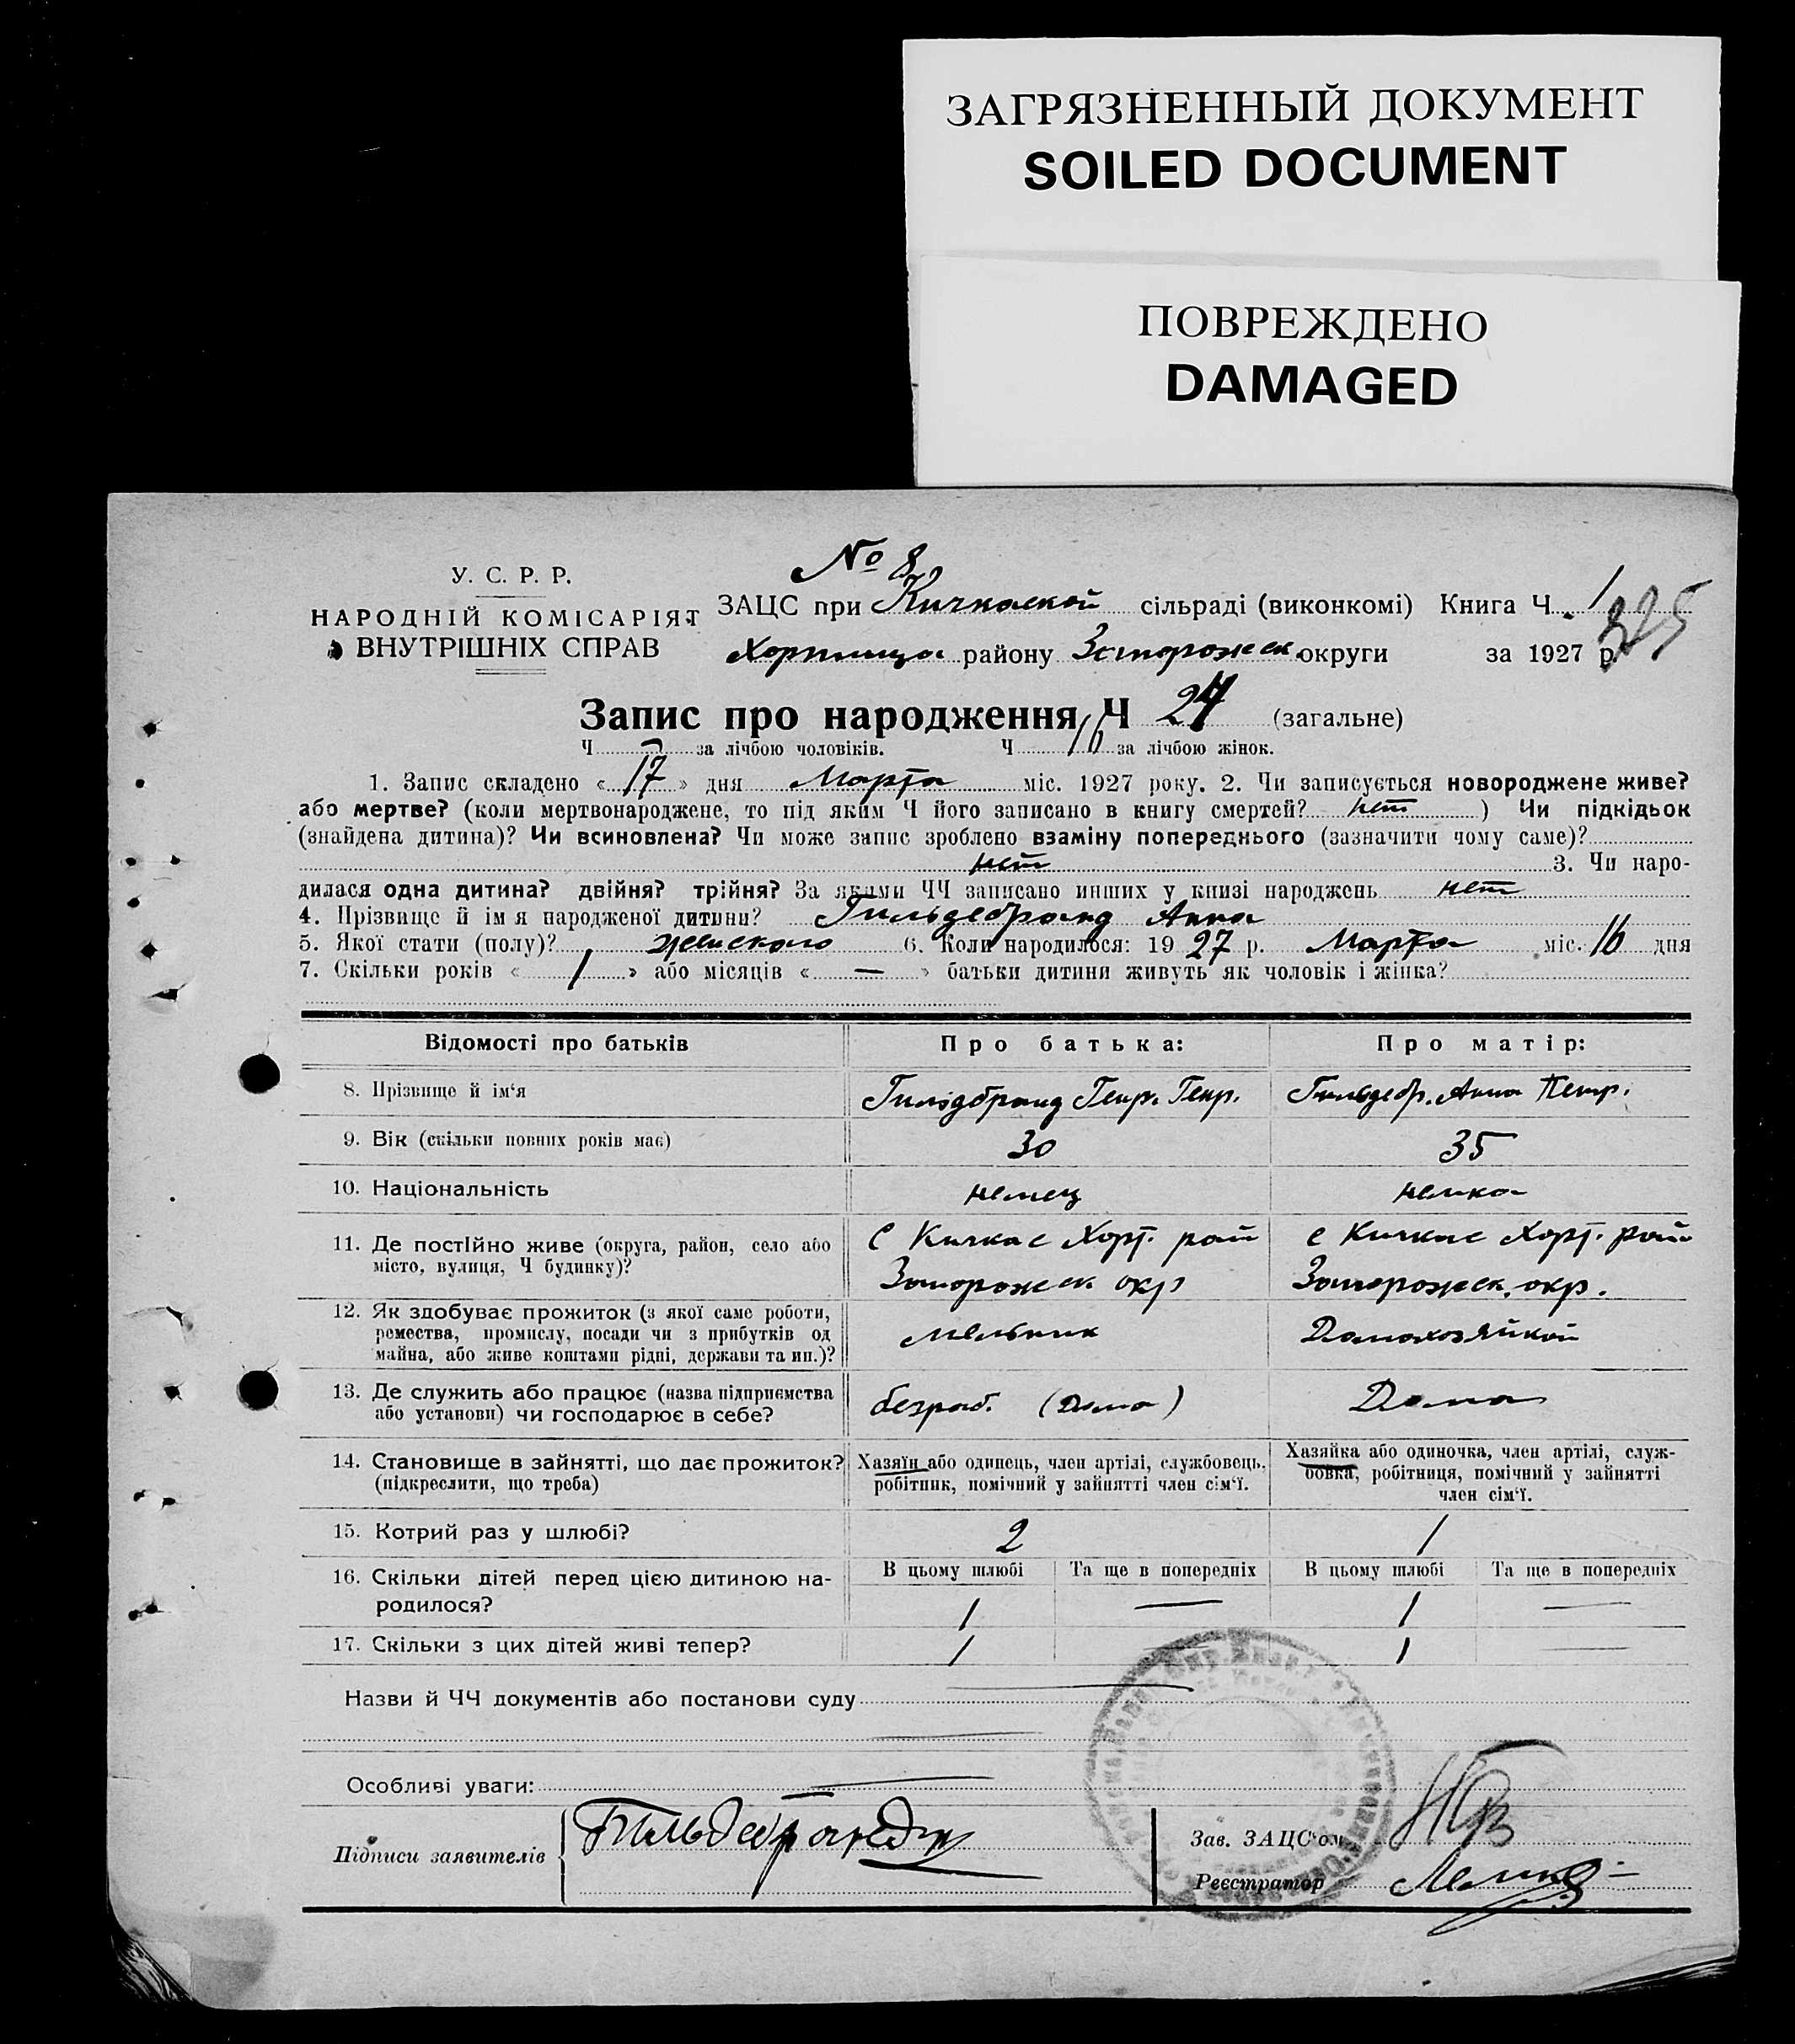 ЗАГРЯЗНЕННЫЙ ДОКУМЕНТ
SOILED DOCUMENT
ПОВРЕЖДЕНО
DAMAGED
№ 8
У. С. Р. Р.
НАРОДНІЙ КОМІСАРІЯТ
ВНУТРІШНІХ СПРАВ
ЗАЦС при Кичкаской сільраді (виконкомі) Книга Ч. 1
325
Хортица району Запорожск округи за 1927 р.
Запис про народження Ч 24 (загальне)
Ч. — за лічбою чоловіків. Ч. 16 за лічбою жінок.
1. Запис складено «17» дня Марта міс. 1927 року. 2. Чи записується новороджене живе?
або мертве? (коли мертвонароджене, то під яким Ч його записано в книгу смертей? нет ) Чи підкідьок
(знайдена дитина)? Чи всиновлена? Чи може запис зроблено взаміну попереднього (зазначити чому саме)?
нет 3. Чи наро-
дилася одна дитина? двійня? трійня? За якими ЧЧ записано инших у книзі народжень нет
4. Прізвище й ім я народженої дитини? Гильдебранд Анна
5. Якої стати (полу)? женского 6. Коли народилося: 1927 р. Марта міс. 16 дня
7. Скільки років « 1 » або місяців « — » батьки дитини живуть як чоловік і жінка?
Відомості про батьків Про батька: Про матір:
8. Прізвище й ім‘я Гильдбранд Генр. Генр. Гильдебр. Анна Петр.
9. Вік (скільки повних років має) 30 35
10. Національність немец немка
11. Де постійно живе (округа, район, село або місто, вулиця, Ч будинку)?
С Кичкас Хорт. рай
Запорожск окр
с Кичкас Хорт. рай
Запорожск. окр.
12. Як здобуває прожиток (з якої саме роботи,
ремества, промислу, посади чи з прибутків од
майна, або живе коштами рідні, держави та ин.)?
мельник Домохозяйкой
13. Де служить або працює (назва підприємства
або установи) чи господарює в себе?
безраб. (Дома) Дома
14. Становище в зайнятті, що дає прожиток?
(підкреслити, що треба)
Хазяїн або одинець, член артілі, службовець,
робітник, помічний у зайнятті член сім‘ї.
Хазяйка або одиночка, член артілі, служ-
бовка, робітниця, помічний у зайнятті
член сім‘ї.
15. Котрий раз у шлюбі? 2 1
16. Скільки дітей перед цією дитиною на-
родилося?
В цьому шлюбі Та ще в попередніх В цьому шлюбі Та ще в попередніх
1 — 1 —
17. Скільки з цих дітей живі тепер? 1 — 1 —
Назви й ЧЧ документів або постанови суду
Особливі уваги:
Підписи заявителів Гильдебрандт
Зав. ЗАЦС‘ом
Реєстратор